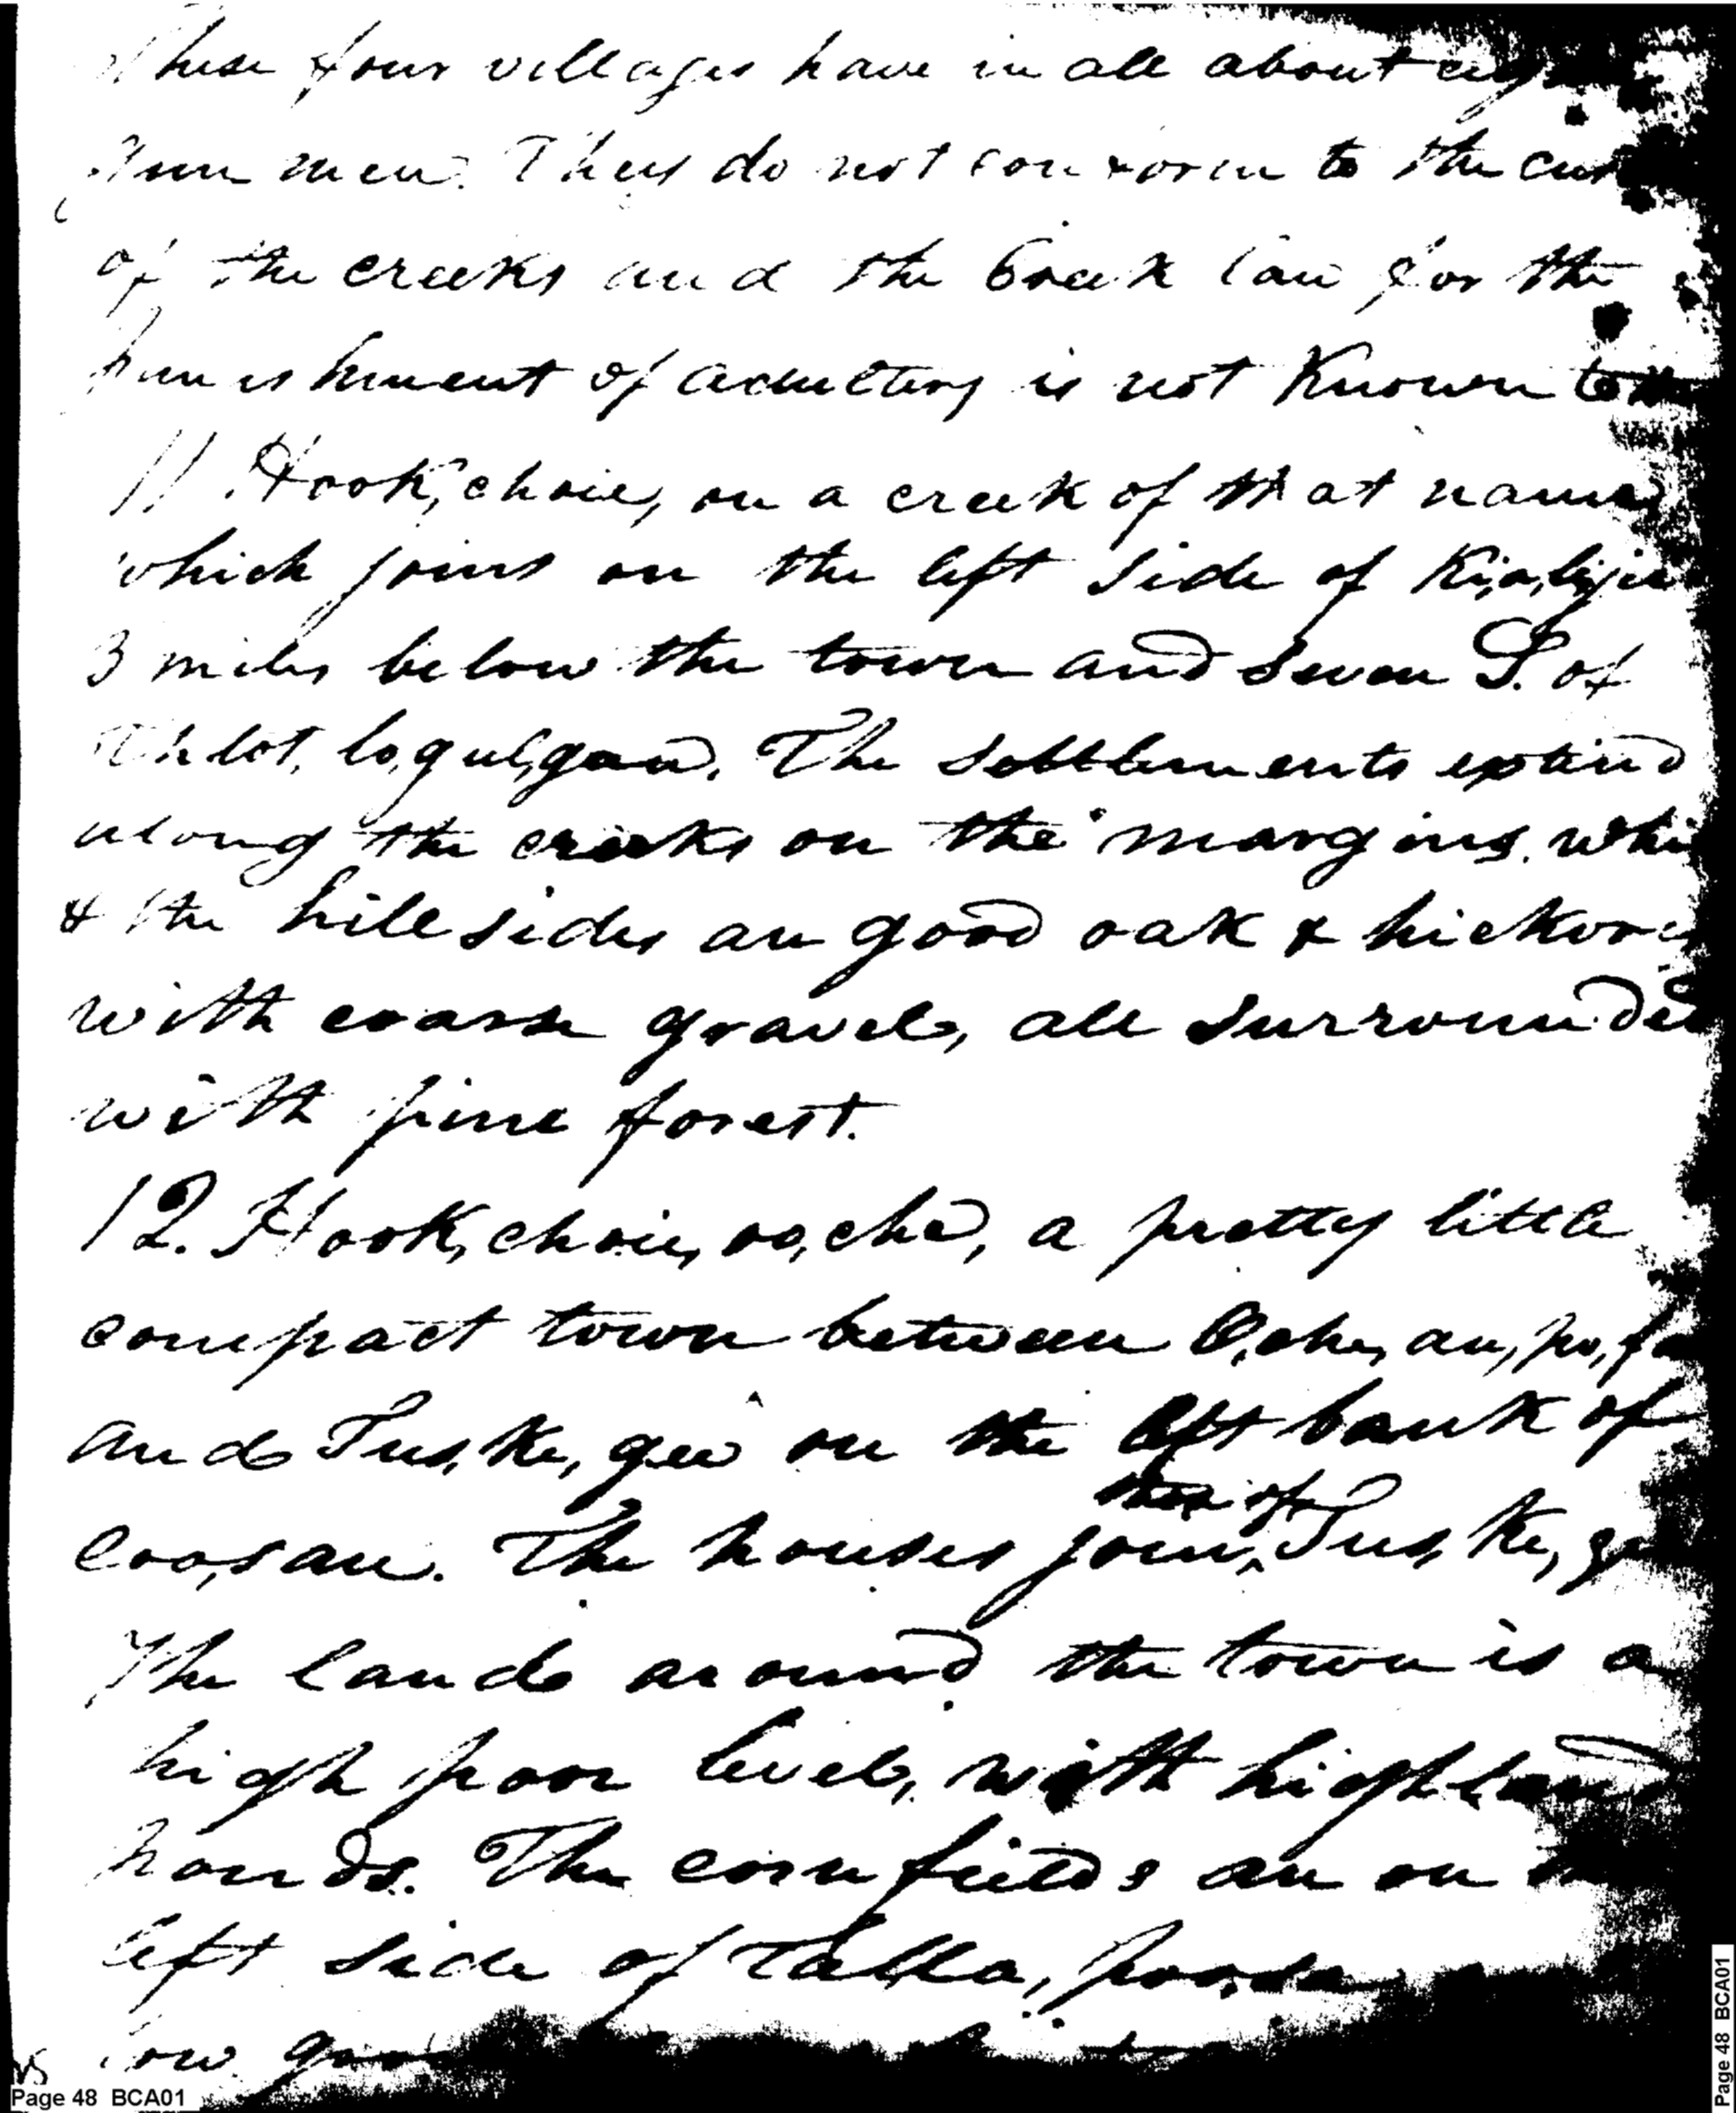 These four villages have in all about
gun men. They do not conform to the
of the creeks and the Creek law for the
punishment of adultery is not known to
11. Hook,choie, on a creek of that name
which joins on the left side of Ki,a,li,jee
3 miles below the town and seven S. of
Thlot,lo,gul,gau. The settlements extend
along the creeks on the margins
& the hillsides are good oak & hickory
with coarse gravel, all surrounded
with pine forest.
12. Hook,choie,oo,che, a pretty little
compact town between O,che,au,po,fa
and Tus,ke,gee on the left bank of
Coo,sau. The houses join, those of Tus,ke,gee
The land around the town is a
high poor level, with highland
ponds. The corn fields are on the
left side of Talla,poosa
low
Page 48 BCA01
Page 48 BCA01